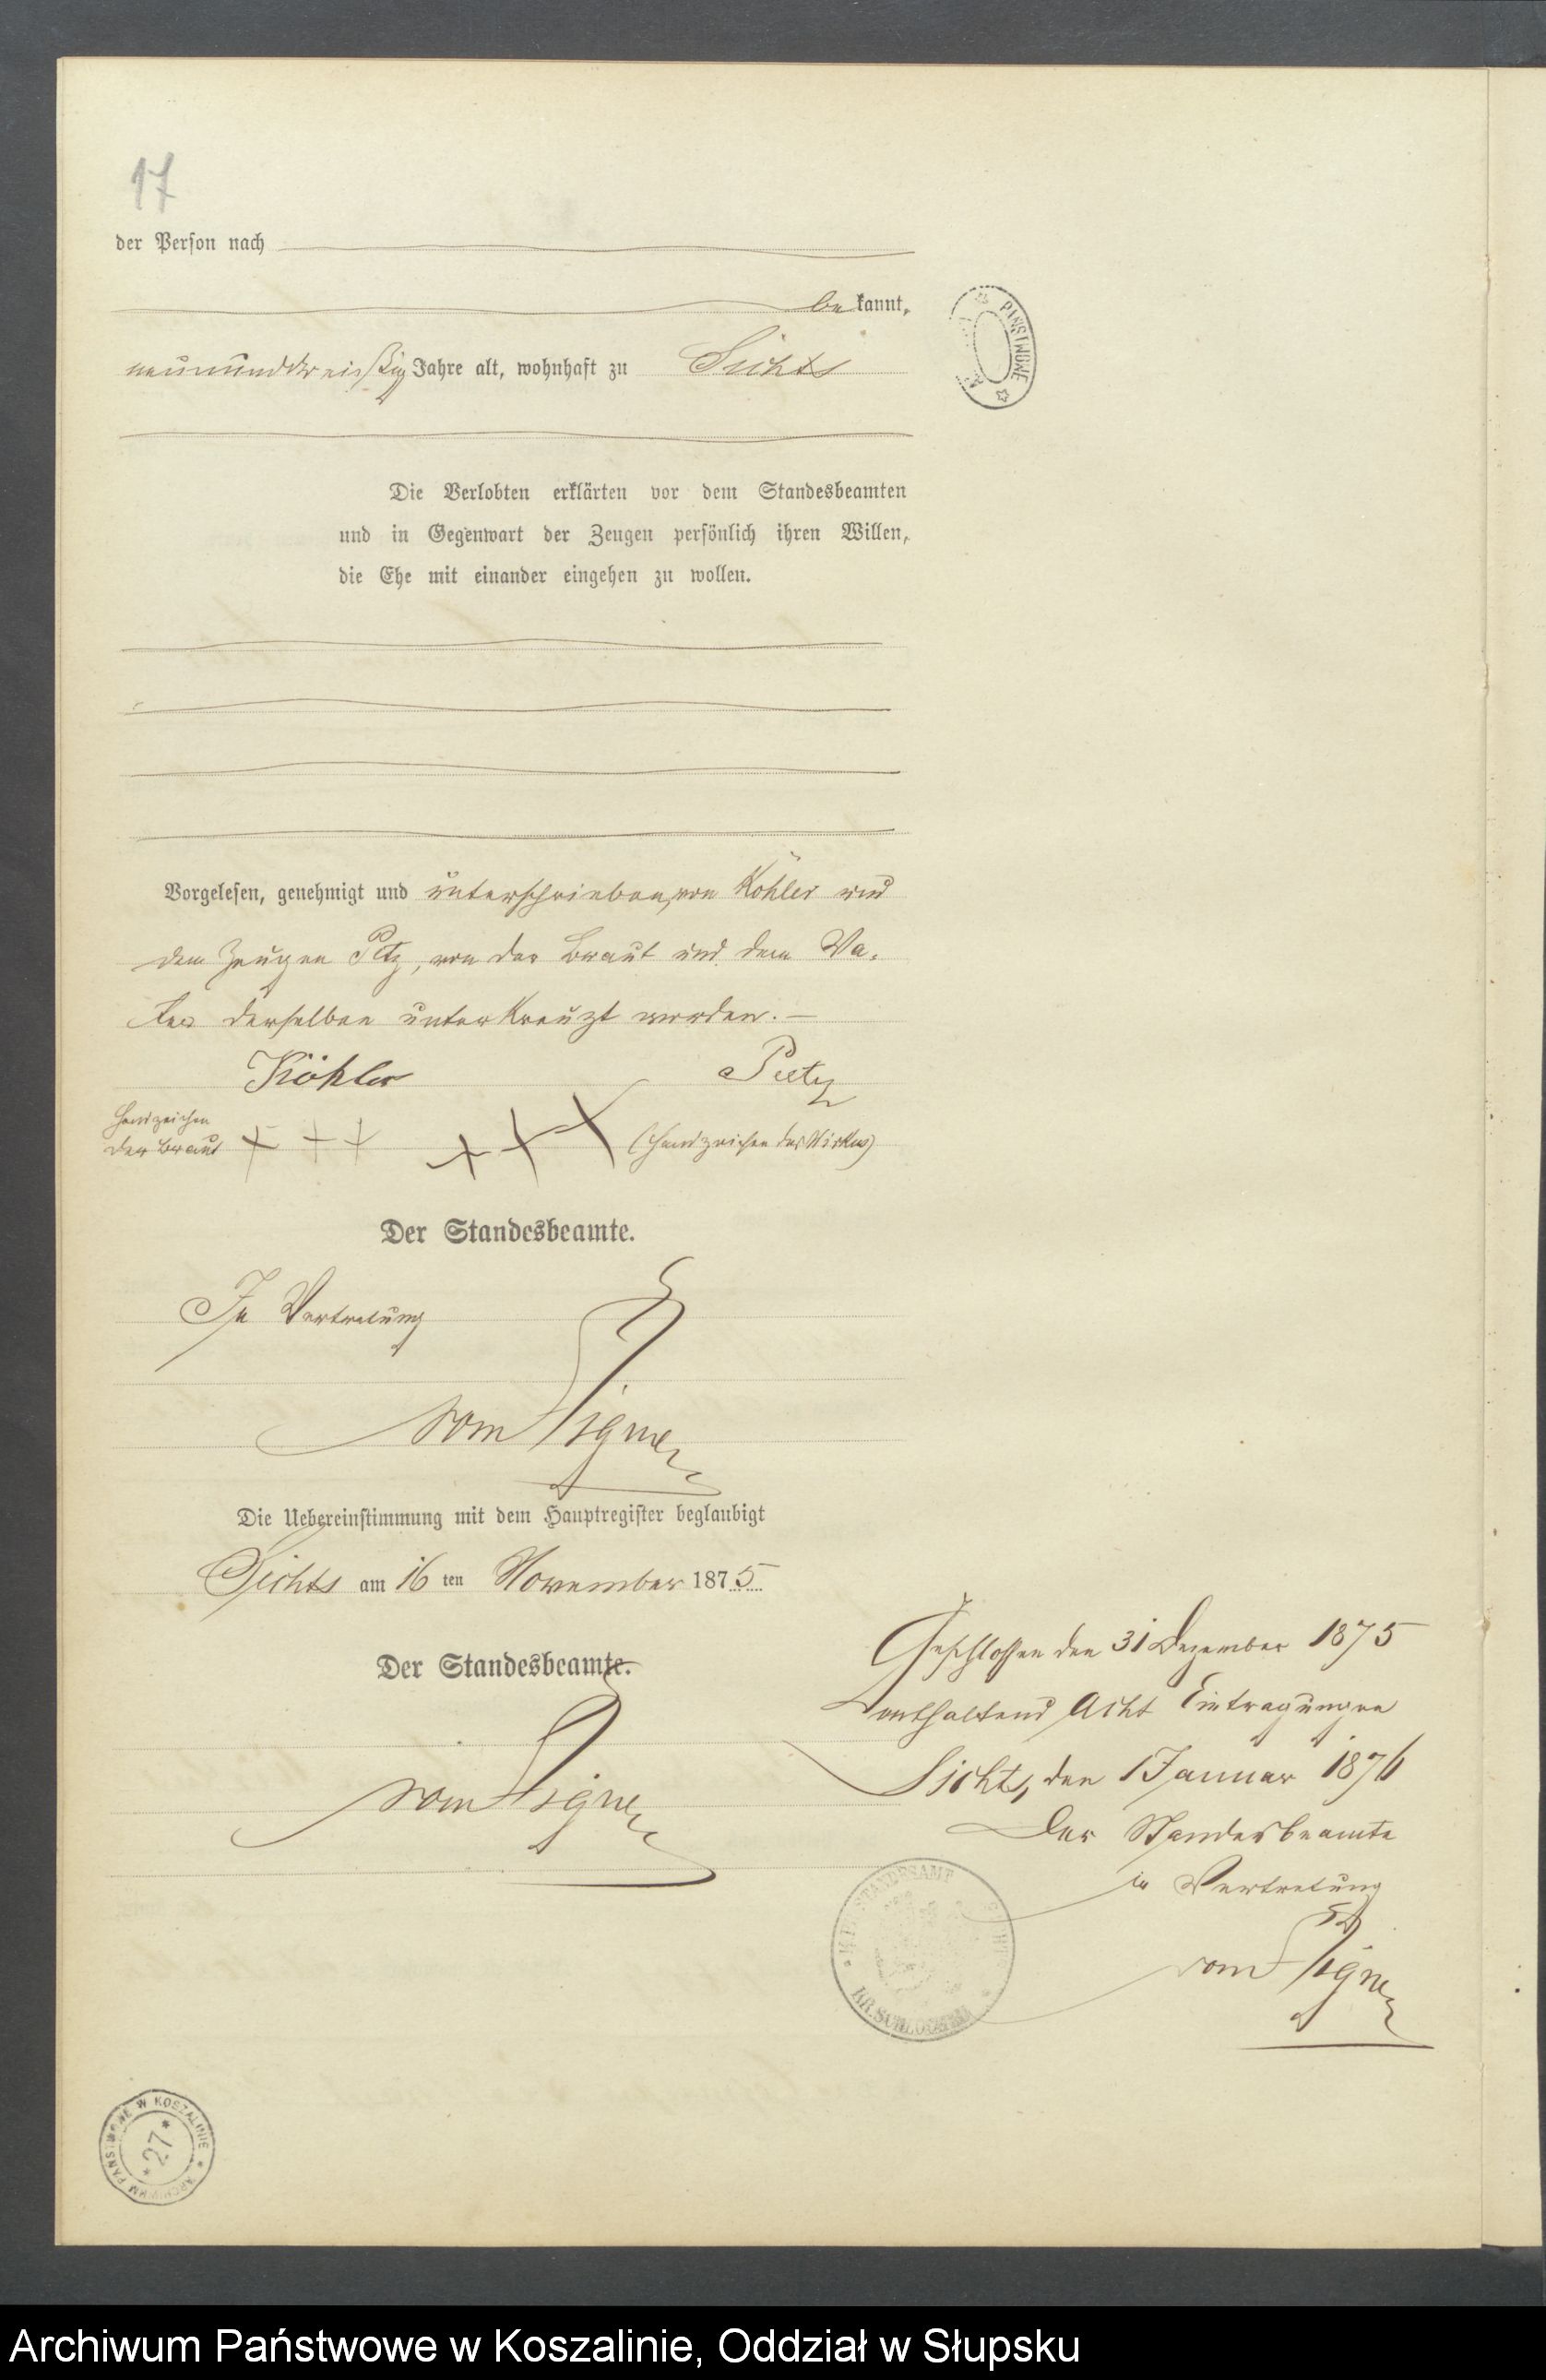 17
der Person nach
bekannt,
neununddreißig Jahre alt, wohnhaft zu Sichts
Die Verlobten erklärten vor dem Standesbeamten
und in Gegenwart der Zeugen persönlich ihren Willen,
die Ehe mit einander eingehen zu wollen.
Vorgelesen, genehmigt und unterschrieben, von Köhler und
dem Zeugen Petz, von der Braut und dem Va-
ter derselben unterkreuzt worden. —
Köhler Peetz
Handzeichen
der Braut +++ +++ (Handzeichen des
Der Standesbeamte.
In Vertretung
vom
Die Uebereinstimmung mit dem Hauptregister beglaubigt
Sichts am 16 ten November 1875
Der Standesbeamte.
vom
Geschlossen den 31 Dezember 1875
enthaltend Acht Eintragungen
Sichts, den 1 Januar 1876
Der Standesbeamte
in Vertretung
vom
STANDESAMT
KR. SCHLOCHAU
PAŃSTWOWE
ARCHIWUM PAŃSTWOWE W KOSZALINIE
* 27 *
Archiwum Państwowe w Koszalinie, Oddział w Słupsku